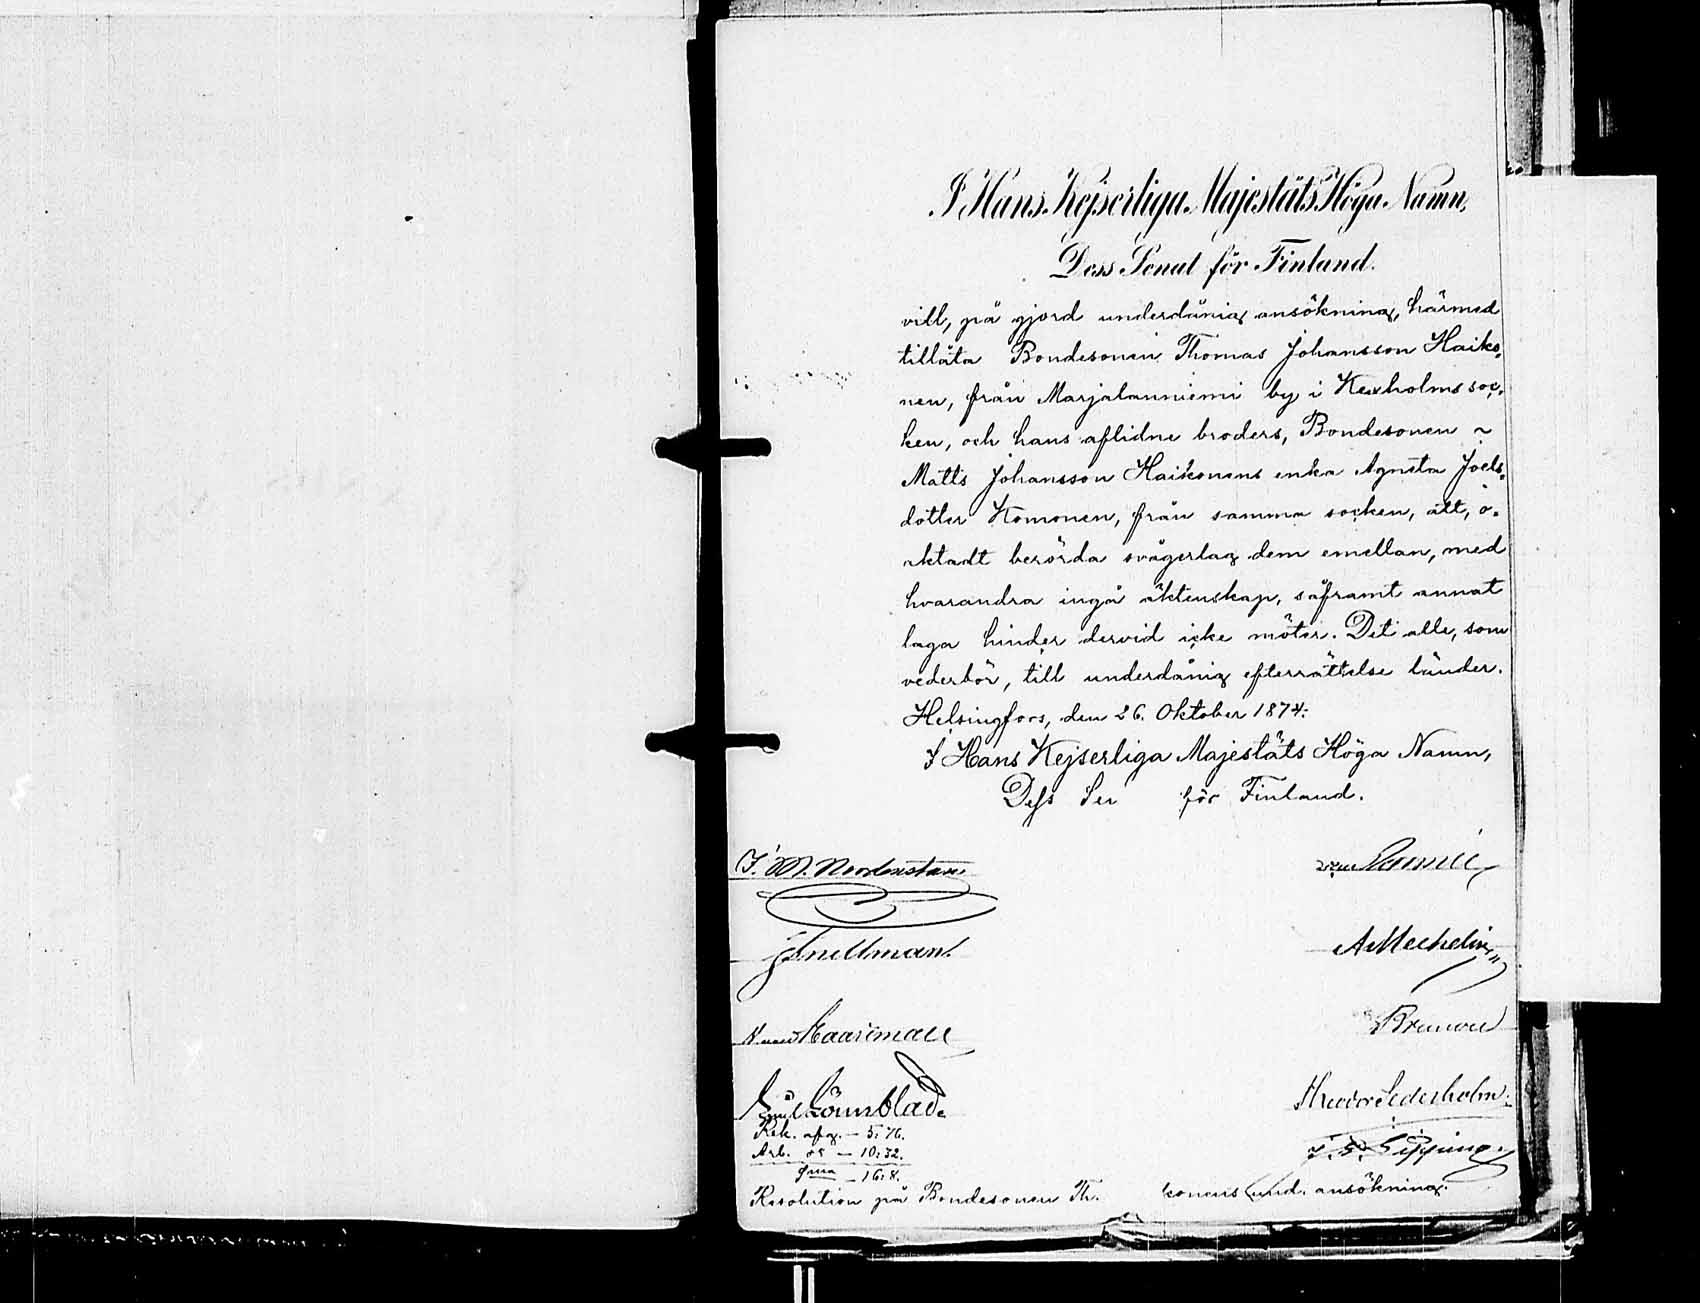 I Hans Kejserliga Majestäts Höga Namn,
Dess Senat för Finland
vill, på gjord underdånig ansökning, härmed
tillåta Bondesonen Thomas Johansson Haiko-
nen, från Marjalanniemi by i Kexholms soc-
ken, och hans aflidne broders, Bondesonen ~
Matts Johansson Haikonens enka Agneta Joels-
dotter Komonen, från samma socken, att, o-
aktadt berörda svågerlag dem emellan, med
hvarandra ingå äktenskap, såframt annat
laga hinder dervid icke möter. Det alle, som
vederbör, till underdånig efterrättelse länder.
Helsingfors, den 26. Oktober 1874.
I Hans Kejserliga Majestäts Höga Namn,
Dess Sen för Finland.
J. M. Nordenstam
von
J Snellman
A Mechelin
von Haartman
Brunou
Lönnblad.
Theodor Sederholm.
Rek. afg. — 5: 76.
Arb. — 10: 32.
J. G. Sipping.
Sma — 16: 8.
Resolution på Bondesonen Th. konens und. ansökning.